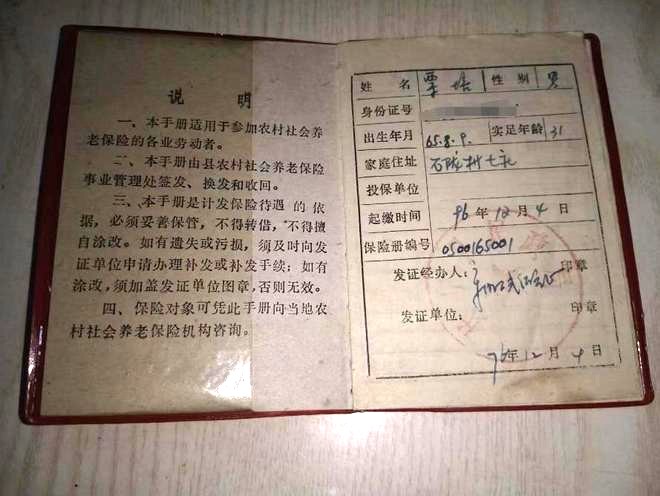 说 明
一、本手册适用于参加农村社会养
老保险的各业劳动者。
二、本手册由县农村社会养老保险
事业管理处签发、换发和收回。
三、本手册是计发保险待遇的依
据，必须妥善保管，不得转借，不得擅
自涂改。如有遗失或污损，须及时向发
证单位申请办理补发或补发手续；如有
涂改，须加盖发证单位图章，否则无效。
四、保险对象可凭此手册向当地农
村社会养老保险机构咨询。
姓 名 栗 性 别 男
身份证号
出生年月 65.8.9. 实足年龄 31
家庭住址 石陇村七礼
投保单位
起缴时间 96年12月4日
保险册编号 0500165001
发证经办人： 印章
发证单位： 印章
96年12月4日